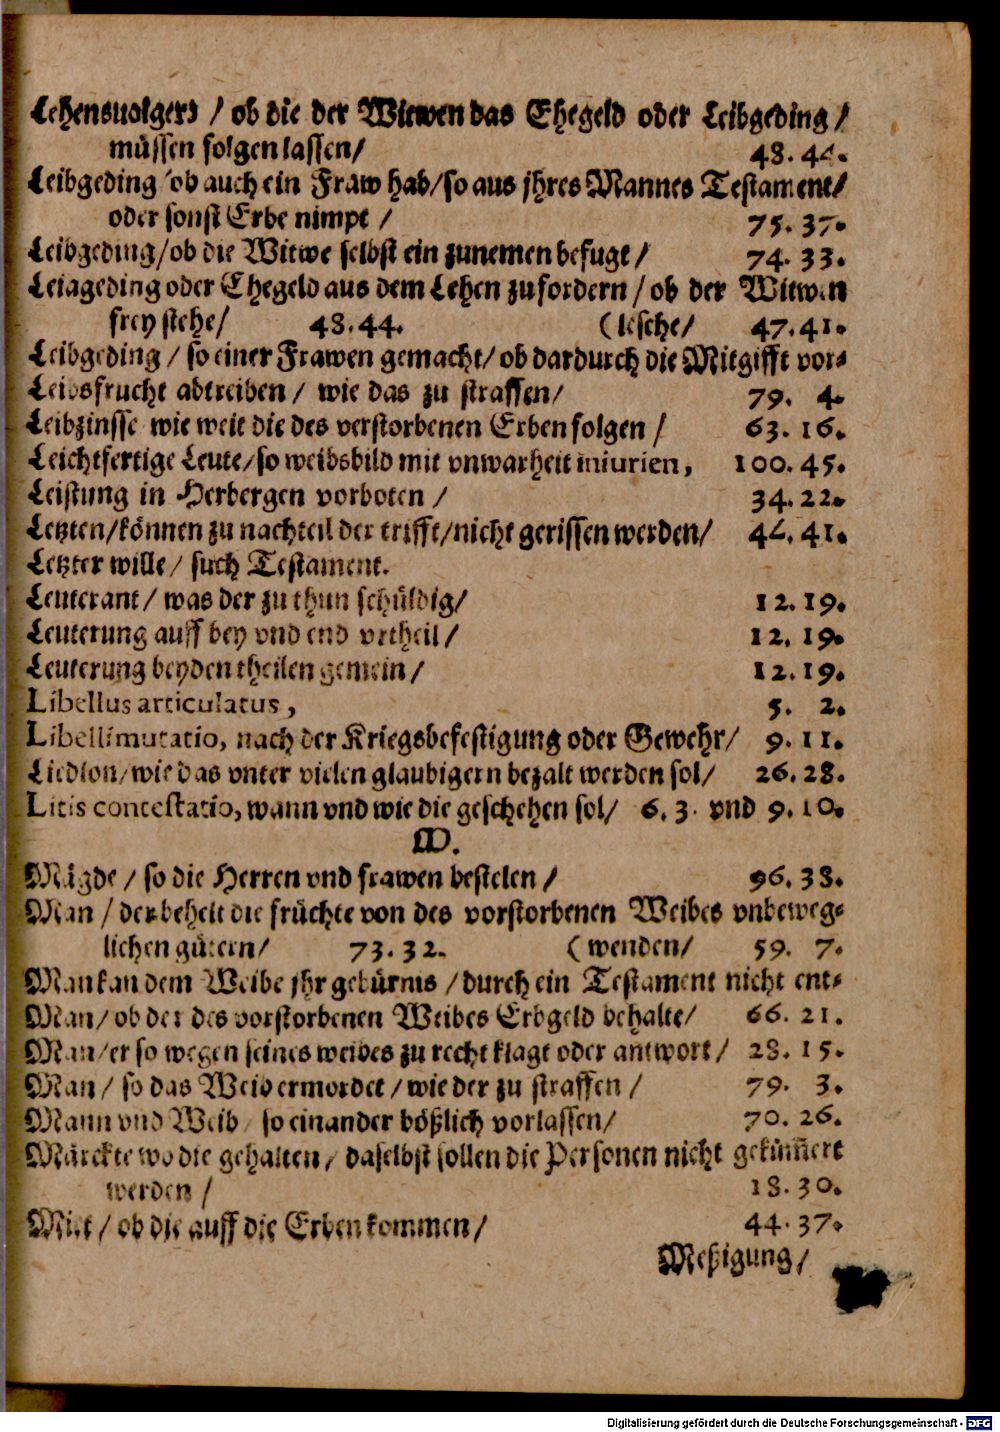 Lehensuolgers / ob die der Witwen das Ehegeld oder Leibgeding /
müssen folgen lassen / 48. 44.
Leibgeding / ob auch ein Fraw hab / so aus jhres Mannes Testament /
oder sonst Erbe nimpt / 75. 37.
Leibgeding / ob die Witwe selbst ein zunemen befugt / 74. 33.
Leiageding oder Ehegeld aus dem Lehen zufordern / ob der Witwen
frey stehe / 48. 44. (lesche / 47. 41.
Leibgeding / so einer Frawen gemacht / ob dardurch die Mitgifft vor-
Leibsfrucht abtreiben / wie das zu straffen / 79. 4.
Leibzinsse wie weit die des verstorbenen Erben folgen / 63. 16.
Leichtfertige Leute / so weibsbild mit vnwarheit iniurien, 100. 45.
Leistung in Herbergen vorboten / 34. 22.
Letzten / können zu nachteil der trifft / nicht gerissen werden / 44. 41.
Letzter wille / such Testament.
Leuterant / was der zu thun schüldig / 12. 19.
Leuterung auff bey vnd end vrtheil / 12. 19.
Leuterung beyden theilen gemein / 12. 19.
Libellus articulatus, 5. 2.
Libelli mutatio, nach der Kriegsbefestigung oder Gewehr / 9. 11.
Liedlon / wie das vnter vielen glaubigern bezalt werden sol / 26. 28.
Litis contestatio, wann vnd wie die geschehen sol / 6. 3. vnd 9. 10.
M.
Mägde / so die Herren vnd frawen bestelen / 96. 38.
Man / der behelt die früchte von des vorstorbenen Weibes vnbeweg-
lichen gütern / 73. 32. (wenden / 59. 7.
Man kan dem Weibe jhr gebürnis / durch ein Testament nicht ent-
Man / ob der des vorstorbenen Weibes Erbgeld behalte / 66. 21.
Man / er so wegen seines weibes zu recht klagt oder antwort / 28. 15.
Man / so das Weib ermordet / wie der zu straffen / 79. 3.
Mann vnd Weib / so einander bößlich vorlassen / 70. 26.
Märckte wo die gehalten / daselbst sollen die Personen nicht gekümmert
werden / 18. 30.
Miet / ob die auff die Erben kommen / 44. 37.
Meßigung /
Digitalisierung gefördert durch die Deutsche Forschungsgemeinschaft - DFG